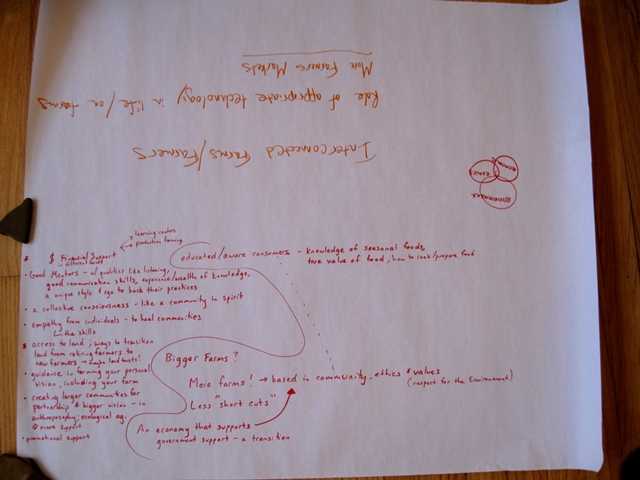 Interconnected Farms/Farmers
Role of appropriate technology in life/on farms
More Farmers Markets
environment
learning centers
production farming
$ Financial Support
educated/aware consumers - knowledge of seasonal foods,
true value of food, how to cook/prepare food
• Good Mentors - w/ qualities like listening,
good communication skills, experience/wealth of knowledge,
a unique style & ego to back their practices
• a collective consciousness - like a community in spirit
• empathy from individuals - to heal communities
the skills
• access to land; ways to transition
land from retiring farmers to
new farmers → land trusts!
• guidance in forming your personal
vision, including your farm
• creating larger communities for
partnership & bigger vision - in
anthroposophy; ecological ag.
more support
• promotional support
Bigger Farms?
More farms! → based in community, ethics & values
(respect for the Environment)
Less "short cuts"
An economy that supports
government support - a transition